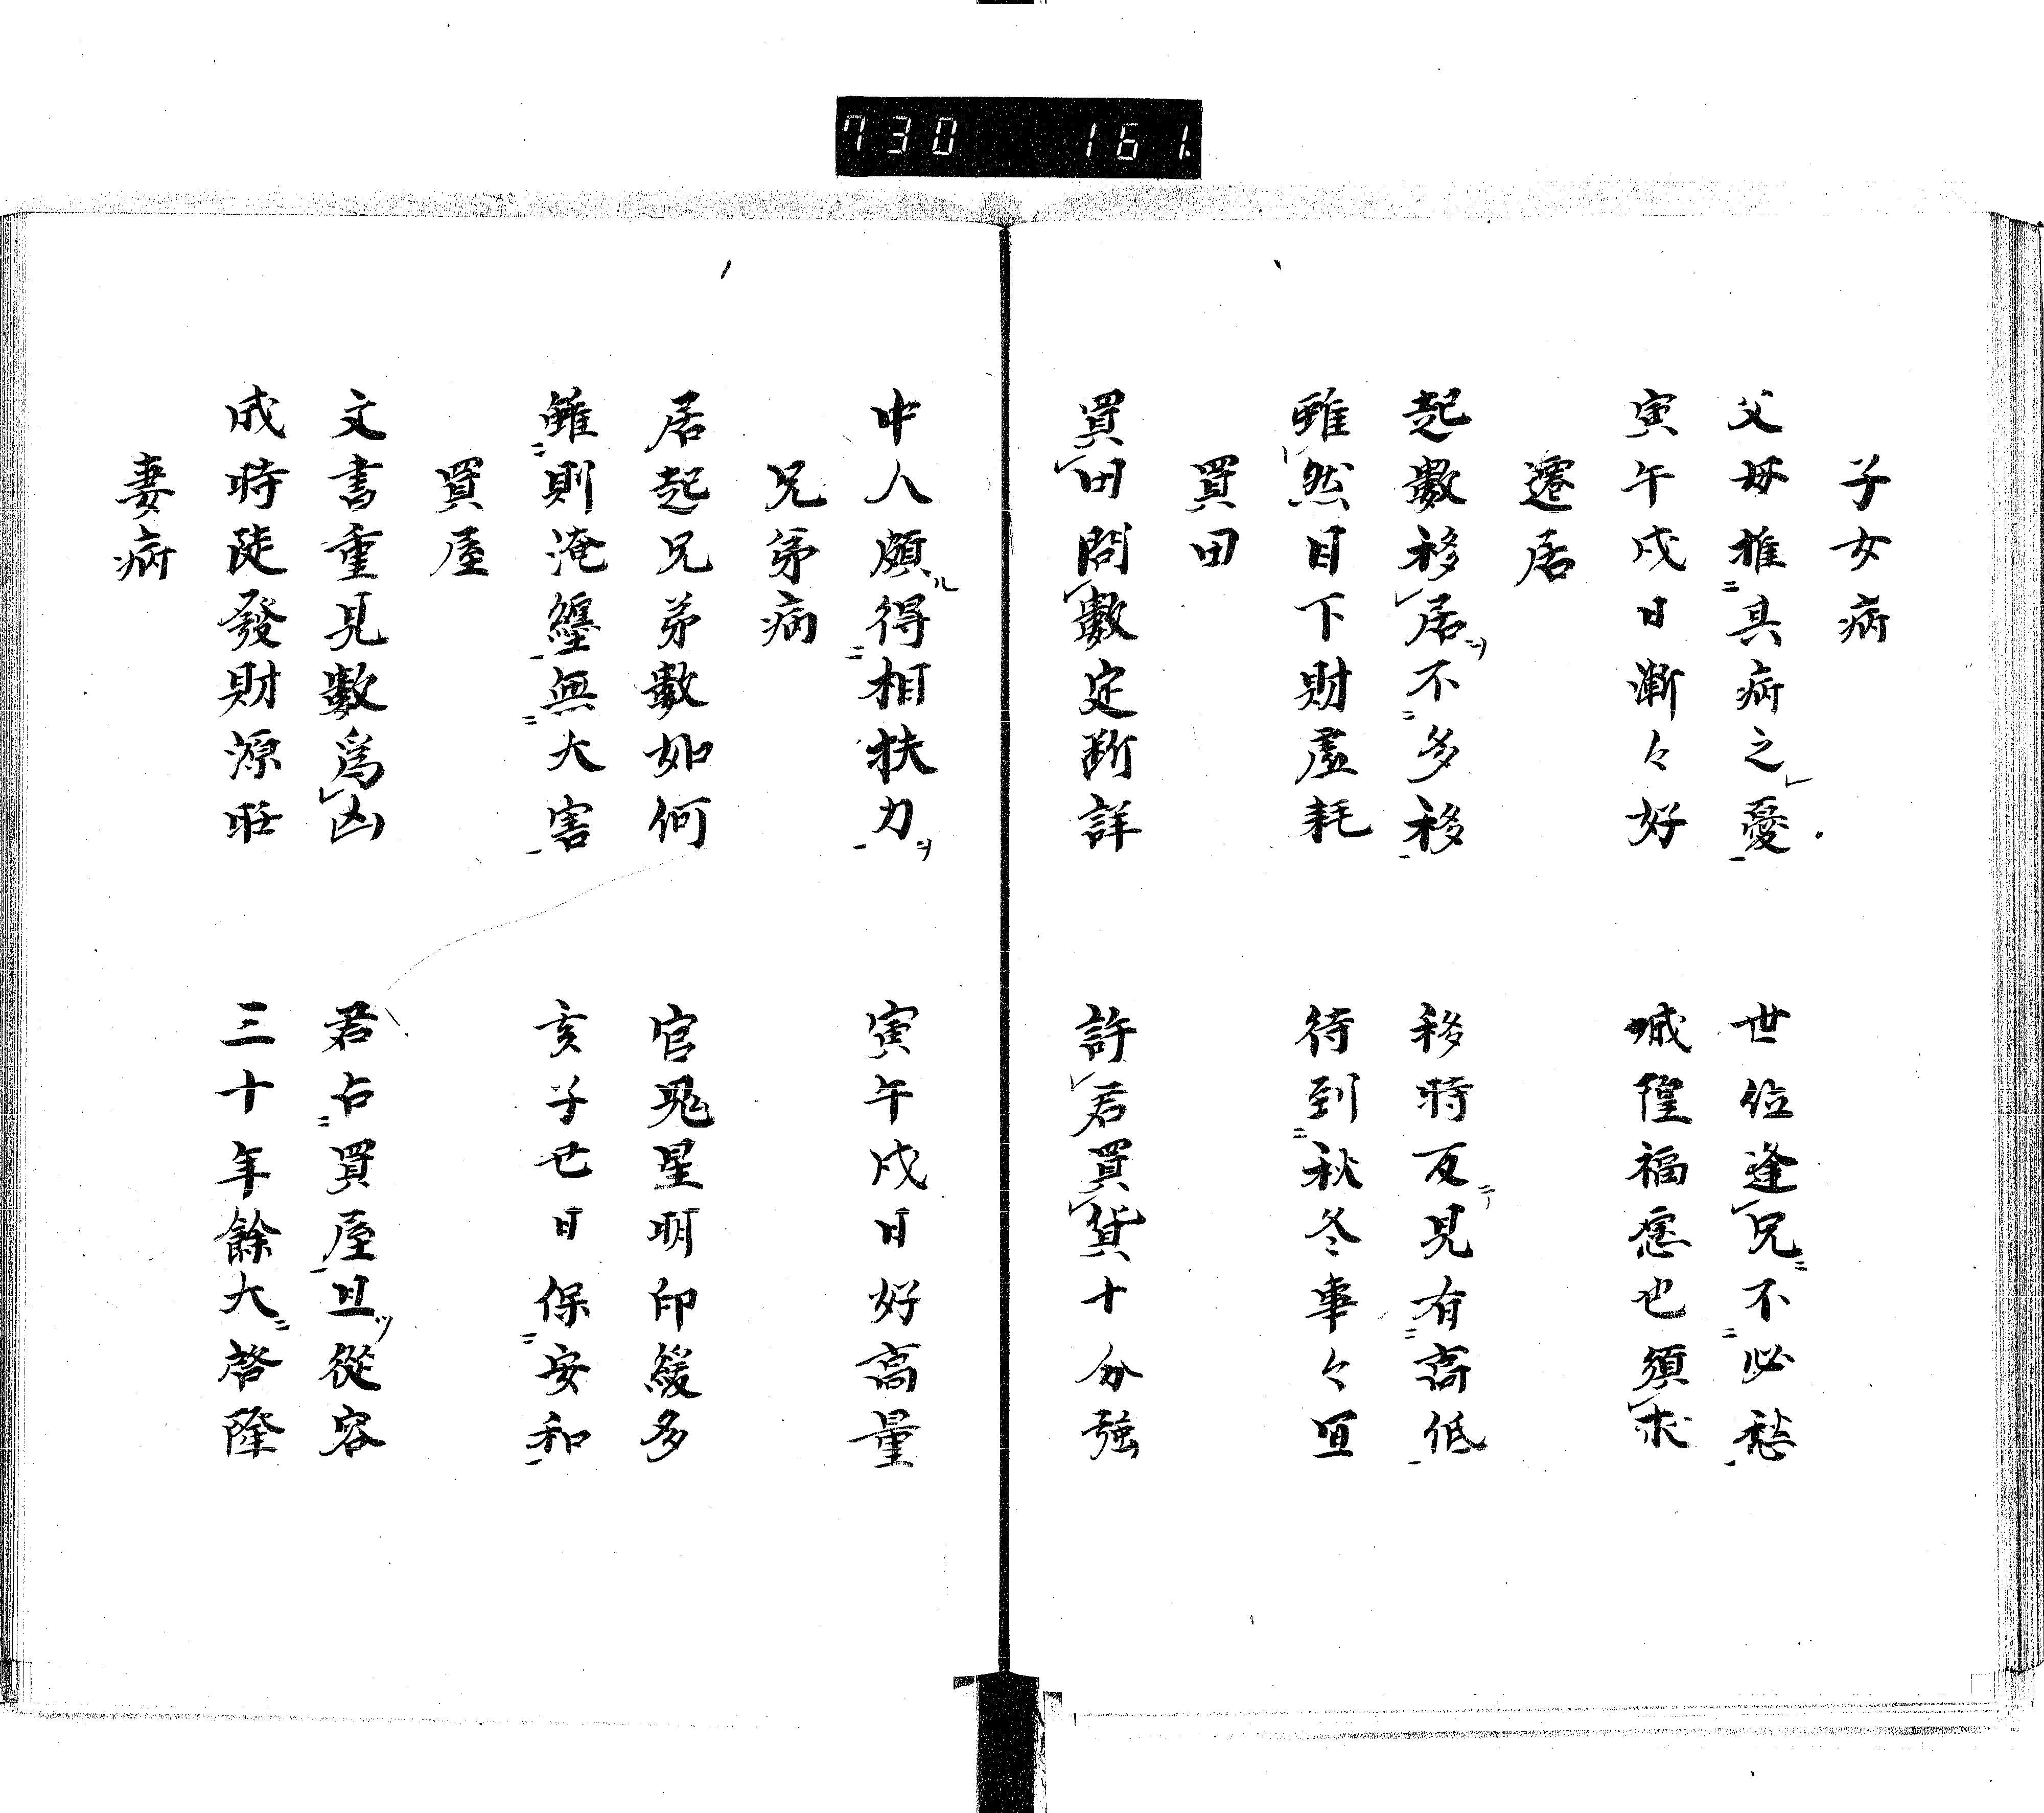 730 161.
子女病
父母推其病之憂 世位逢兄不必愁
寅午戌日漸々好 城隍福愿也須求
遷居
起數移居不多移 移時反見有高低
雖然目下財虛耗 待到秋冬事々宜
買田
買田問數定斷詳 許君買貨十分強
中人頗得相扶力 寅午戌日好高量
兄弟病
居起兄弟數如何 官鬼星明印綬多
雖則淹纏無大害 亥子丑日保安和
買屋
文書重見數爲凶 君占買屋且從容
成時陡發財源旺 三十年餘大啓隆
妻病